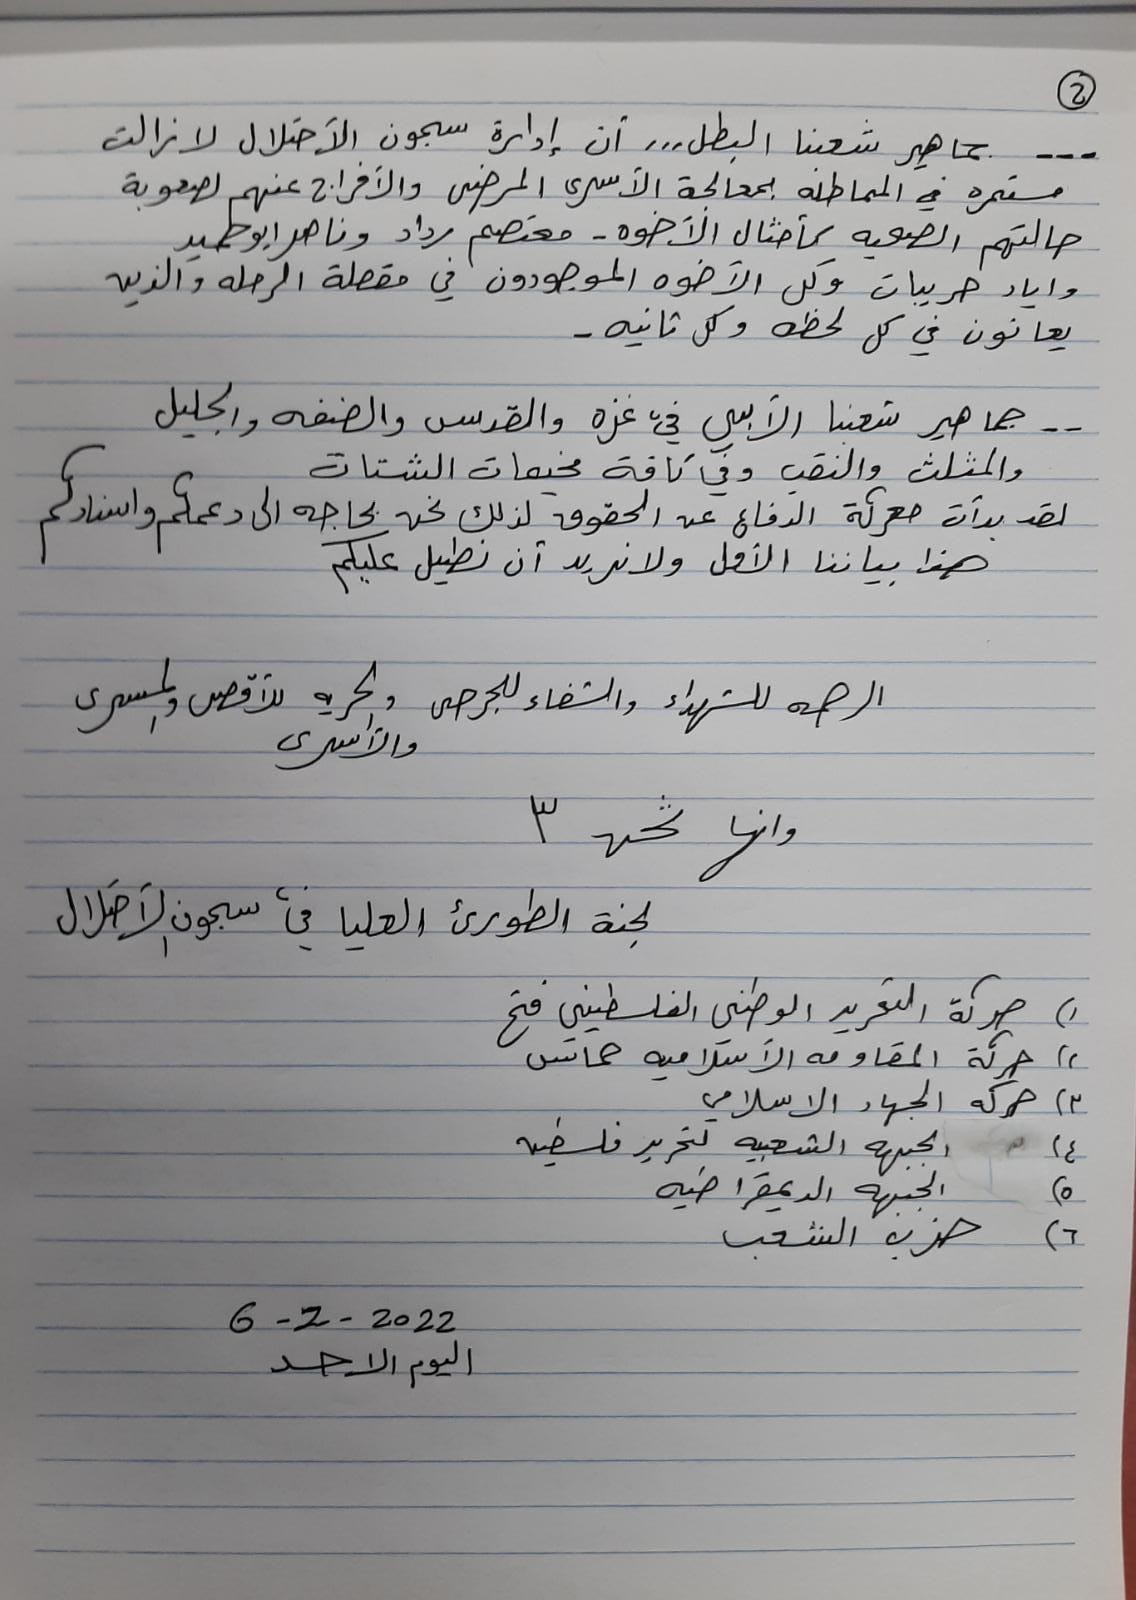 2
--- جماهير شعبنا البطل... أن إدارة سجون الأحتلال لا زالت
مستمره في المماطله بمعالجة الأسرى المرضى والأفراج عنهم لصعوبة
حالتهم الصحيه كأمثال الأخوه - معتصم رداد وناصر ابو حميد
واياد حريبات وكل الأخوه الموجودون في مقصلة الرمله والذين
يعانون في كل لحظه وكل ثانيه -
-- جماهير شعبنا الأبي في غزه والقدس والضفه والجليل
والمثلث والنقب وفي كافة مخيمات الشتات
لقد بدأت معركة الدفاع عن الحقوق لذلك نحن بحاجه الى دعمكم واسنادكم
هذا بياننا الأول ولا نريد أن نطيل عليكم
الرحمه للشهداء والشفاء للجرحى والحريه للأقصى والمسرى
والأسرى
وانها نحن ٣
لجنة الطورئ العليا في سجون الأحتلال
١) حركة التحرير الوطني الفلسطيني فتح
٢) حركة المقاومه الأسلاميه حماس
٣) حركه الجهاد الاسلامي
٤) الجبهه الشعبيه لتحرير فلسطين
٥) الجبهه الديمقراطيه
٦) حزب الشعب
6-2-2022
اليوم الاحد